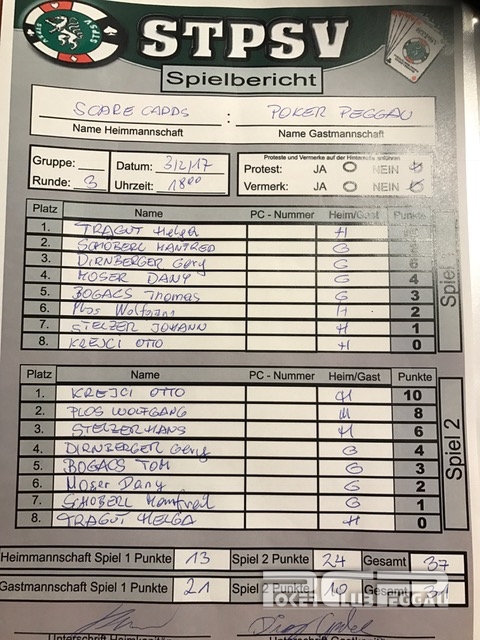 STPSV
Spielbericht
SCARE CARDS : POKER PEGGAU
Name Heimmannschaft Name Gastmannschaft
Gruppe: Datum: 3/2/17 Proteste und Vermerke auf der Hinterseite anführen
Protest: JA NEIN
Runde: 3 Uhrzeit: 18⁰⁰ Vermerk: JA NEIN
Platz Name PC - Nummer Heim/Gast Punkte
1. TRAGUT Helga H
2. SCHÖBERL MANFRED G
3. DIRNBERGER Gery G 6
4. MOSER DANY G 4
5. BOGACS Thomas G 3
6. Plos Wolfgang H 2
7. STELZER JOHANN H 1
8. KREJCI OTTO H 0
Spiel 1
Platz Name PC - Nummer Heim/Gast Punkte
1. KREJCI OTTO H 10
2. PLOS WOLFGANG H 8
3. STELZER HANS H 6
4. DIRNBERGER Gery G 4
5. BOGACS TOM G 3
6. Moser Dany G 2
7. SCHÖBERL Manfred G 1
8. TRAGUT HELGA H 0
Spiel 2
Heimmannschaft Spiel 1 Punkte 13 Spiel 2 Punkte 24 Gesamt 37
Gastmannschaft Spiel 1 Punkte 21 Spiel 2 Punkte 10 Gesamt 31
POKER CLUB PEGGAU
Unterschrift